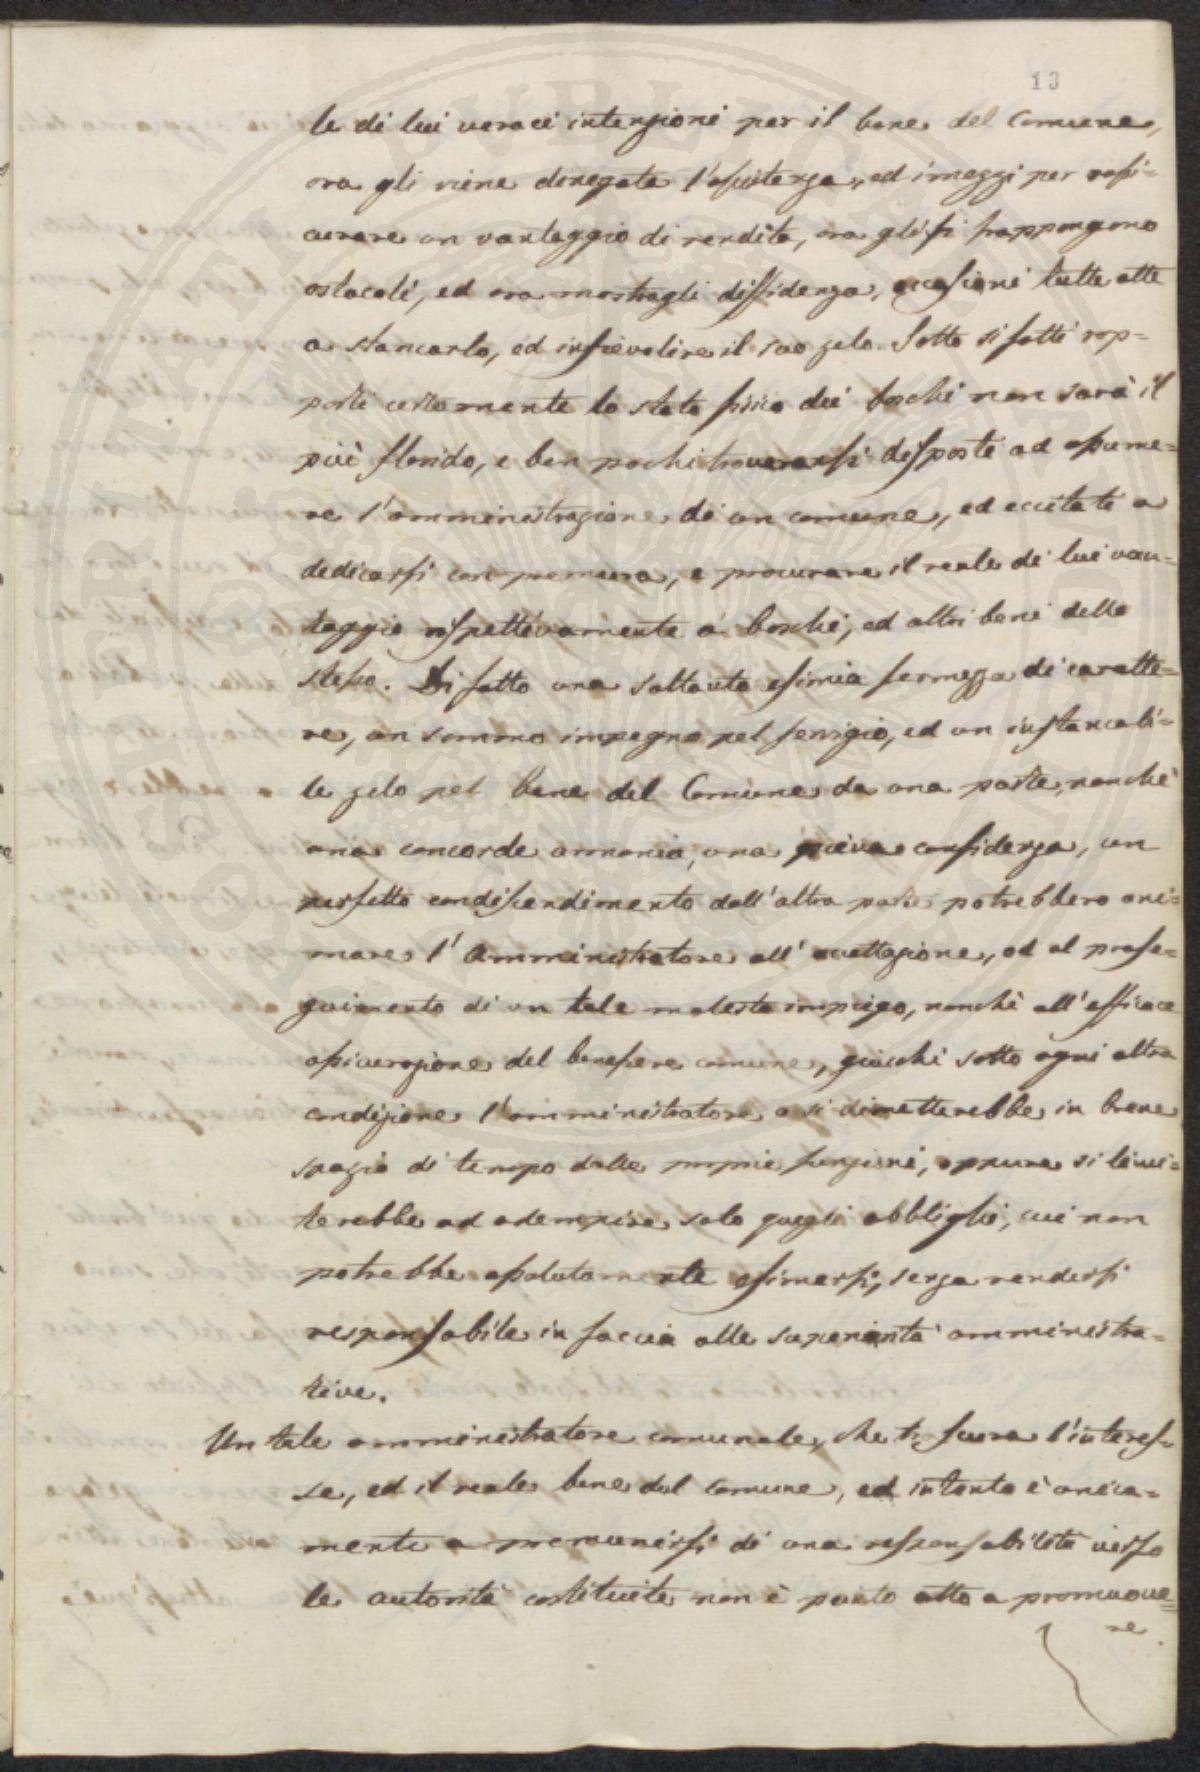 13
le di lui veraci intenzioni per il bene del Comune,
ora gli viene dinegata l'assistenza, ed i mezzi per assi=
curare un vantaggio di rendita, ora gli si frappongono
ostacoli, ed ora mostragli diffidenza, occasioni tutte atte
a stancarlo, ed infievolire il suo zelo. Sotto si fatti rap=
porti certamente lo stato fisico dei boschi non sarà il
più florido, e ben pochi troveransi disposti ad assume=
re l'amministrazione di un comune, ed eccitati a
dedicarsi con premura, e procurare il reale di lui van=
taggio rispettivamente a' boschi, ed altri beni dello
stesso. Di fatto una soltanto esimia fermezza di caratte=
re, un sommo impegno pel servigio, ed un instancabi=
le zelo pel bene del Comune da una parte, nonchè
una concorde armonia, una piena confidenza, un
perfetto condiscendimento dall'altra parte potrebbero ani=
mare l'Amministratore all'accettazione, ed al prose=
guimento di un tale molesto impiego, nonchè all'efficace
assicurazione del benessere comune, giacchè sotto ogni altra
condizione l'amministratore o si dimetterebbe in breve
spazio di tempo dalle proprie funzioni, oppure si limi=
terebbe ad adempire solo quegli obblighi, cui non
potrebbe assolutamente esimersi, senza rendersi
responsabile in faccia alle superiorità amministra=
tive.
Un tale amministratore comunale, che trascura l'interes=
se, ed il reale bene del Comune, ed intento è unica=
mente a premunirsi di una responsabilità verso
le autorità costituite non è punto atto a promuove=
re